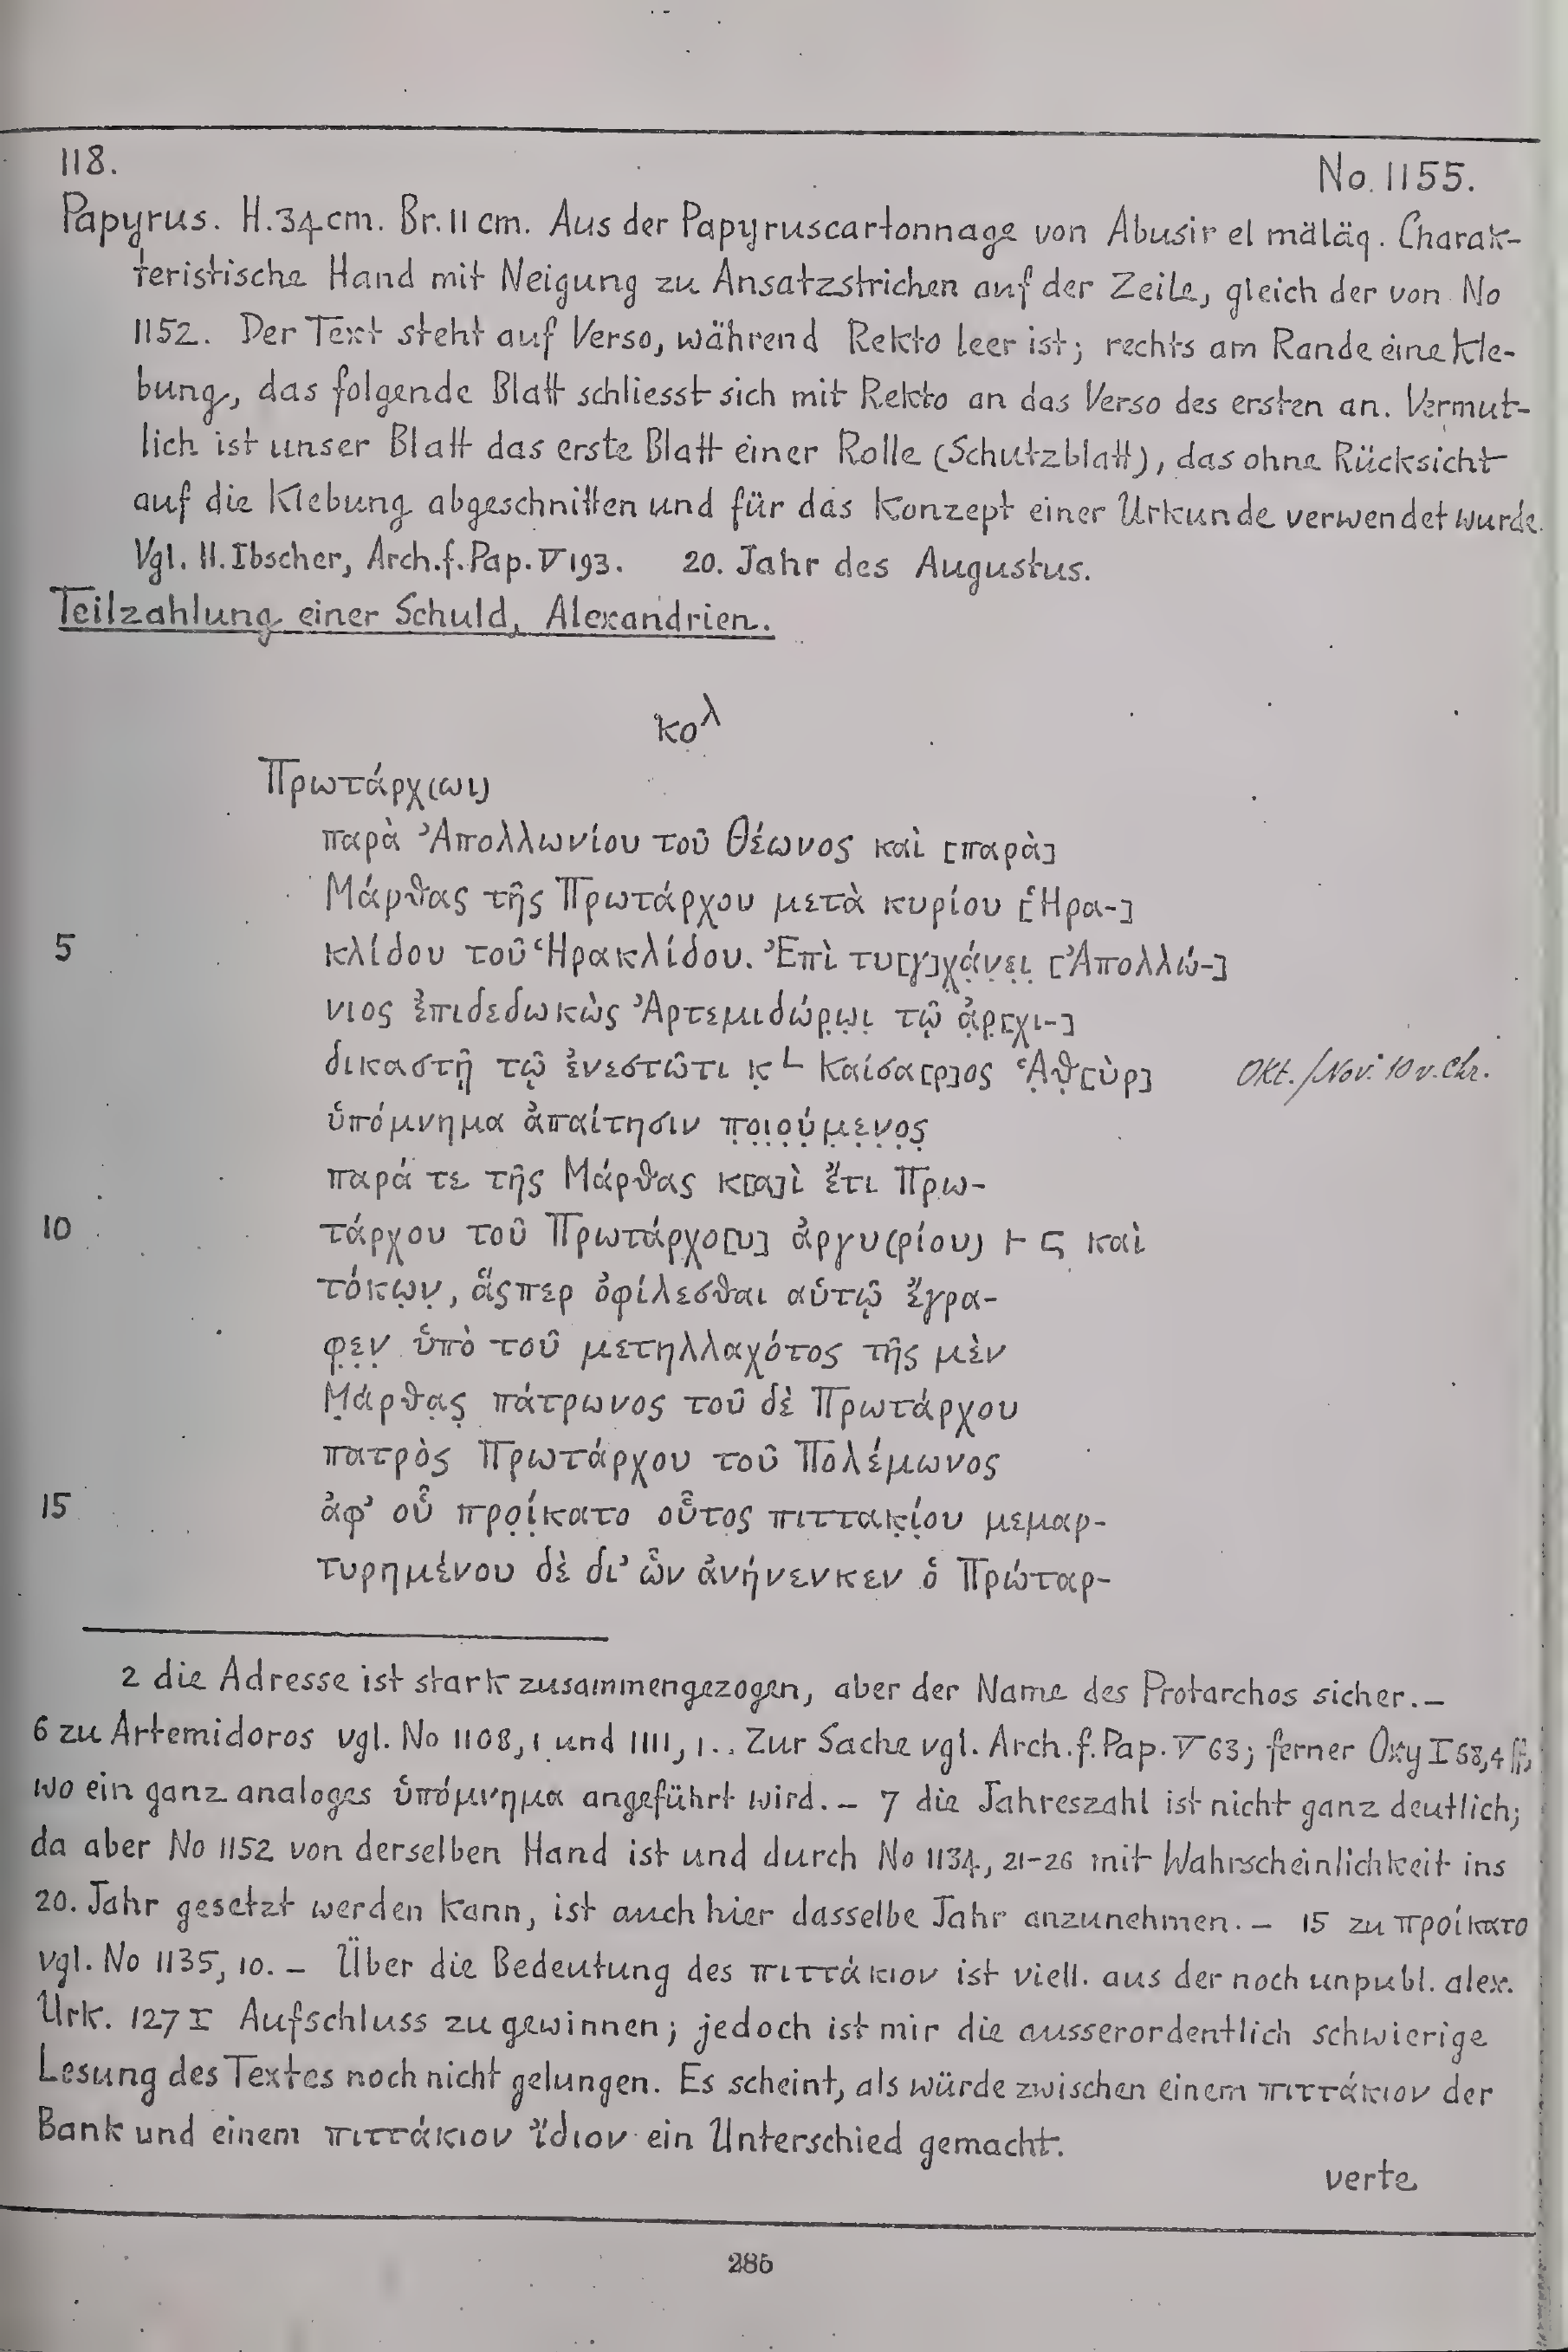 118.
No. 1155.
Papyrus. H. 34 cm. Br. 11 cm. Aus der Papyruscartonnage von Abusir el mäläq. Charak-
teristische Hand mit Neigung zu Ansatzstrichen auf der Zeile, gleich der von No
1152. Der Text steht auf Verso, während Rekto leer ist; rechts am Rande eine Kle-
bung, das folgende Blatt schliesst sich mit Rekto an das Verso des ersten an. Vermut-
lich ist unser Blatt das erste Blatt einer Rolle (Schutzblatt), das ohne Rücksicht
auf die Klebung abgeschnitten und für das Konzept einer Urkunde verwendet wurde.
Vgl. H. Ibscher, Arch. f. Pap. V 193. 20. Jahr des Augustus.
Teilzahlung einer Schuld, Alexandrien.
κολ
Πρωτάρχ(ωι)
παρὰ Ἀπολλωνίου τοῦ Θέωνος καὶ [παρὰ]
Μάρθας τῆς Πρωτάρχου μετὰ κυρίου [Ἡρα-]
5 κλίδου τοῦ Ἡρακλίδου. Ἐπὶ τυ[γ]χ̣ά̣ν̣ε̣ι̣ [Ἀπολλώ-]
νιος ἐπιδεδωκὼς Ἀρτεμιδώρ̣ω̣ι̣ τῷ ἀ̣ρ̣[χι-]
δικαστῇ τῷ ἐνεστῶτι κ̣ L Καίσα[ρ]ος Ἁ̣θ̣[ὺρ] Okt./Nov. 10 v. Chr.
ὑπόμνημα ἀπαίτησιν π̣ο̣ι̣ο̣ύ̣μ̣ε̣ν̣ο̣ς̣
παρά τε τῆς Μάρθας κ[α]ὶ ἔτι Πρω-
10 τάρχου τοῦ Πρωτάρχο[υ] ἀργυ(ρίου) Ͱ ϛ καὶ
τόκω̣ν̣, ἅςπερ ὀφίλεσθαι αὐτῷ ἔγρα-
φ̣ε̣ν̣ ὑπὸ τοῦ μετηλλαχότος τῆς μὲν
Μ̣άρθα̣ς̣ πάτρωνος τοῦ δὲ Πρωτάρχου
πατρὸς Πρωτάρχου τοῦ Πολέμωνος
15 ἀφ’ οὗ προ̣ί̣κατο οὗτος πιττακ̣ί̣ου μεμαρ-
τυρημένου δὲ δι’ ὧν ἀνήνενκεν ὁ Πρώταρ-
2 die Adresse ist stark zusammengezogen, aber der Name des Protarchos sicher. –
6 zu Artemidoros vgl. No 1108, 1 und 1111, 1. Zur Sache vgl. Arch. f. Pap. V 63; ferner Oxy I 68, 4 ff,
wo ein ganz analoges ὑπόμνημα angeführt wird. – 7 die Jahreszahl ist nicht ganz deutlich;
da aber No 1152 von derselben Hand ist und durch No 1134, 21-26 mit Wahrscheinlichkeit ins
20. Jahr gesetzt werden kann, ist auch hier dasselbe Jahr anzunehmen. – 15 zu προίκατο
vgl. No 1135, 10. – Über die Bedeutung des πιττάκιον ist viell. aus der noch unpubl. alex.
Urk. 127 I Aufschluss zu gewinnen; jedoch ist mir die ausserordentlich schwierige
Lesung des Textes noch nicht gelungen. Es scheint, als würde zwischen einem πιττάκιον der
Bank und einem πιττάκιον ἴδιον ein Unterschied gemacht.
verte
286